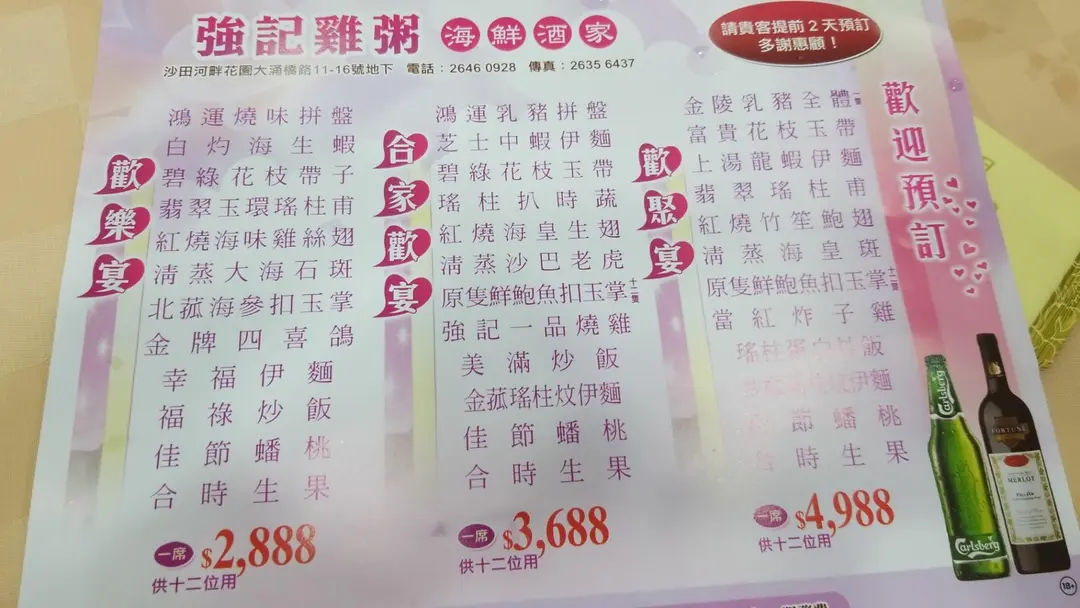 強記雞粥 海鮮酒家
請貴客提前2天預訂
多謝惠顧！
沙田河畔花園大涌橋路11-16號地下 電話：2646 0928 傳真：2635 6437
歡迎預訂
歡樂宴
鴻運燒味拼盤
白灼海生蝦
碧綠花枝帶子
翡翠玉環瑤柱甫
紅燒海味雞絲翅
清蒸大海石斑
北菰海參扣玉掌
金牌四喜鴿
幸福伊麵
福祿炒飯
佳節蟠桃
合時生果
一席 $2,888
供十二位用
合家歡宴
鴻運乳豬拼盤
芝士中蝦伊麵
碧綠花枝玉帶
瑤柱扒時蔬
紅燒海皇生翅
清蒸沙巴老虎
原隻鮮鮑魚扣玉掌十二隻
強記一品燒雞
美滿炒飯
金菰瑤柱炆伊麵
佳節蟠桃
合時生果
一席 $3,688
供十二位用
歡聚宴
金陵乳豬全體
富貴花枝玉帶
上湯龍蝦伊麵
翡翠瑤柱甫
紅燒竹笙鮑翅
清蒸海皇斑
原隻鮮鮑魚扣玉掌十二隻
當紅炸子雞
瑤柱蛋白炒飯
伊麵
節蟠桃
合時生果
一席 $4,988
供十二位用
Carlsberg
Carlsberg
FORTUNE
MERLOT
18+